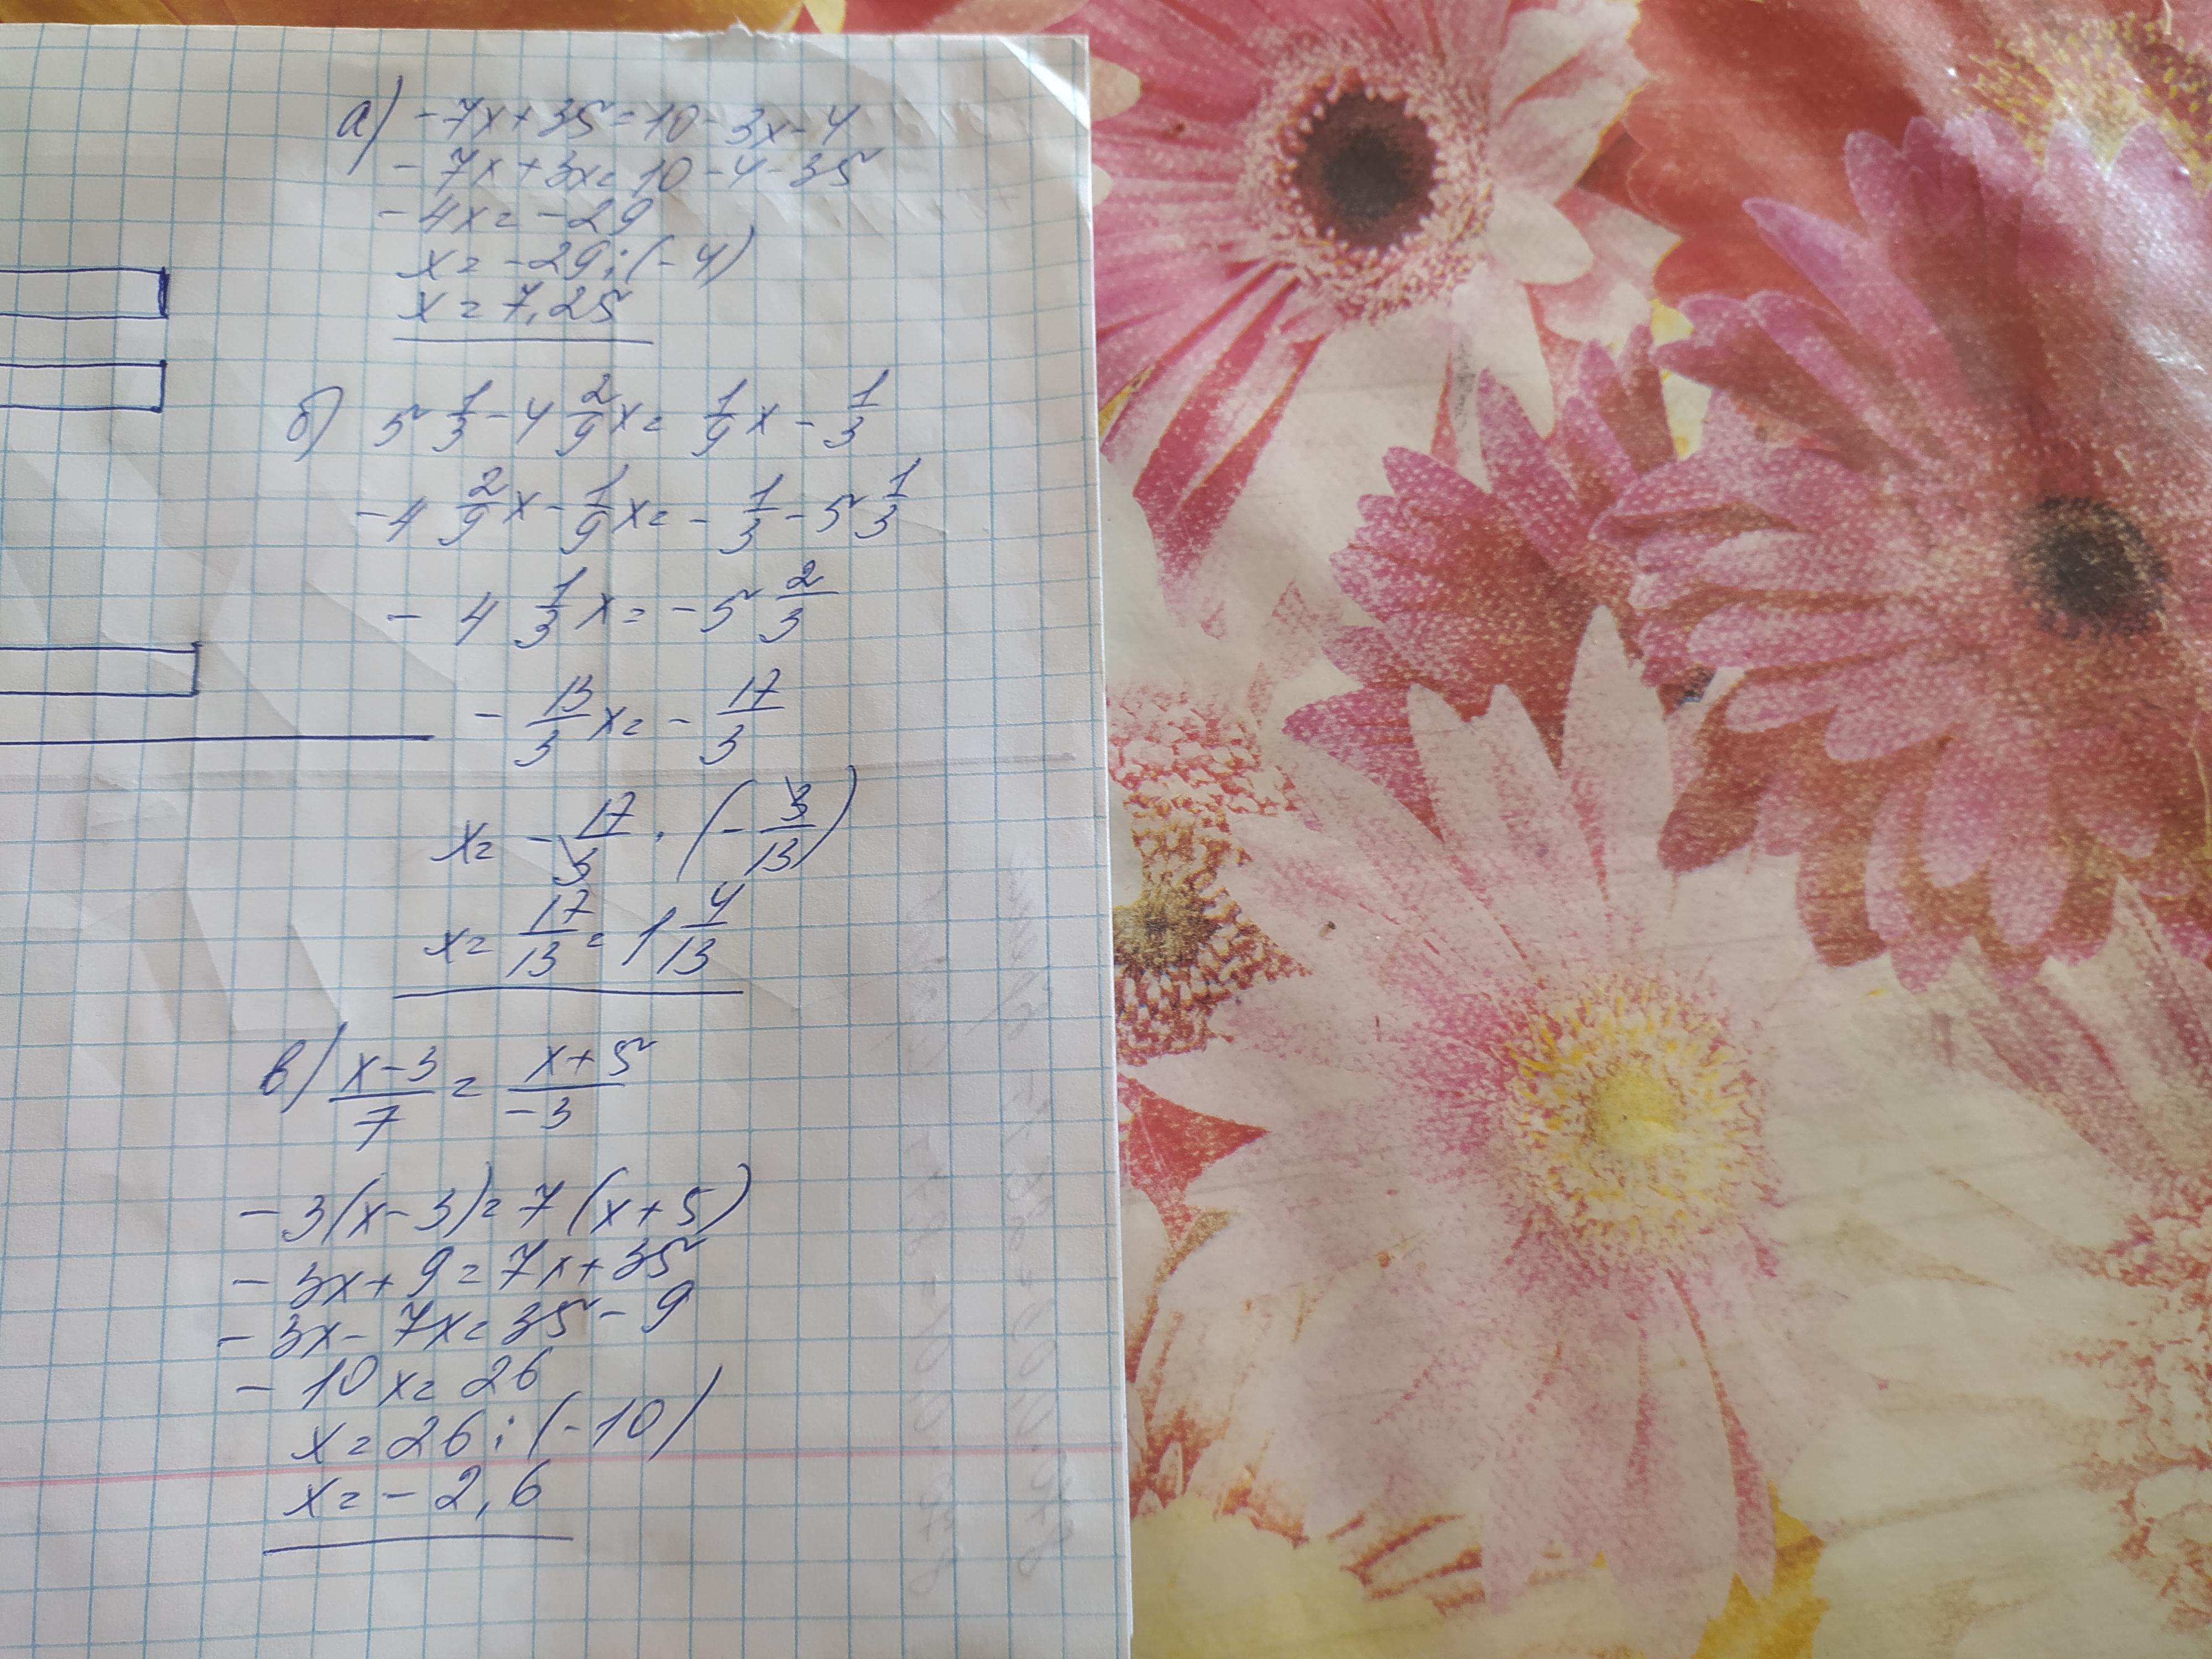 а) -7x+35=10-3x-4
-7x+3x=10-4-35
-4x=-29
x=-29:(-4)
x=7,25
б) 5 1/3 - 4 2/9 x = 1/9 x - 1/3
-4 2/9 x - 1/9 x = - 1/3 - 5 1/3
- 4 1/3 x = -5 2/3
- 13/3 x = - 17/3
x = - 17/3 · (- 3/13)
x = 17/13 = 1 4/13
в) (x-3)/7 = (x+5)/(-3)
-3(x-3)=7(x+5)
-3x+9=7x+35
-3x-7x=35-9
-10x=26
x=26:(-10)
x=-2,6